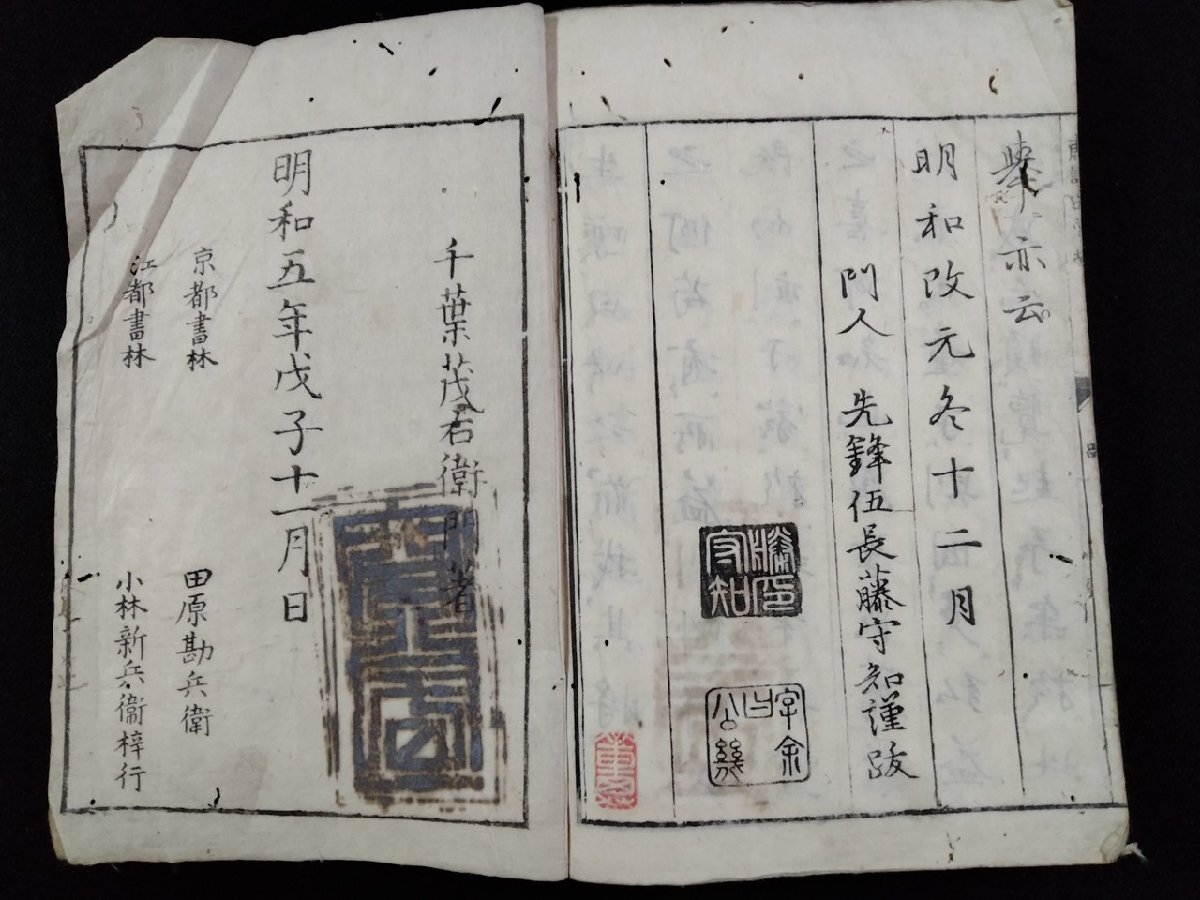 輿亦云
明和改元冬十二月
門人 先鋒伍長藤守知謹跋
藤印守知
字余曰公幾
千葉茂右衛門著
明和五年戊子十一月日
京都書林 田原勘兵衛
江都書林 小林新兵衞梓行